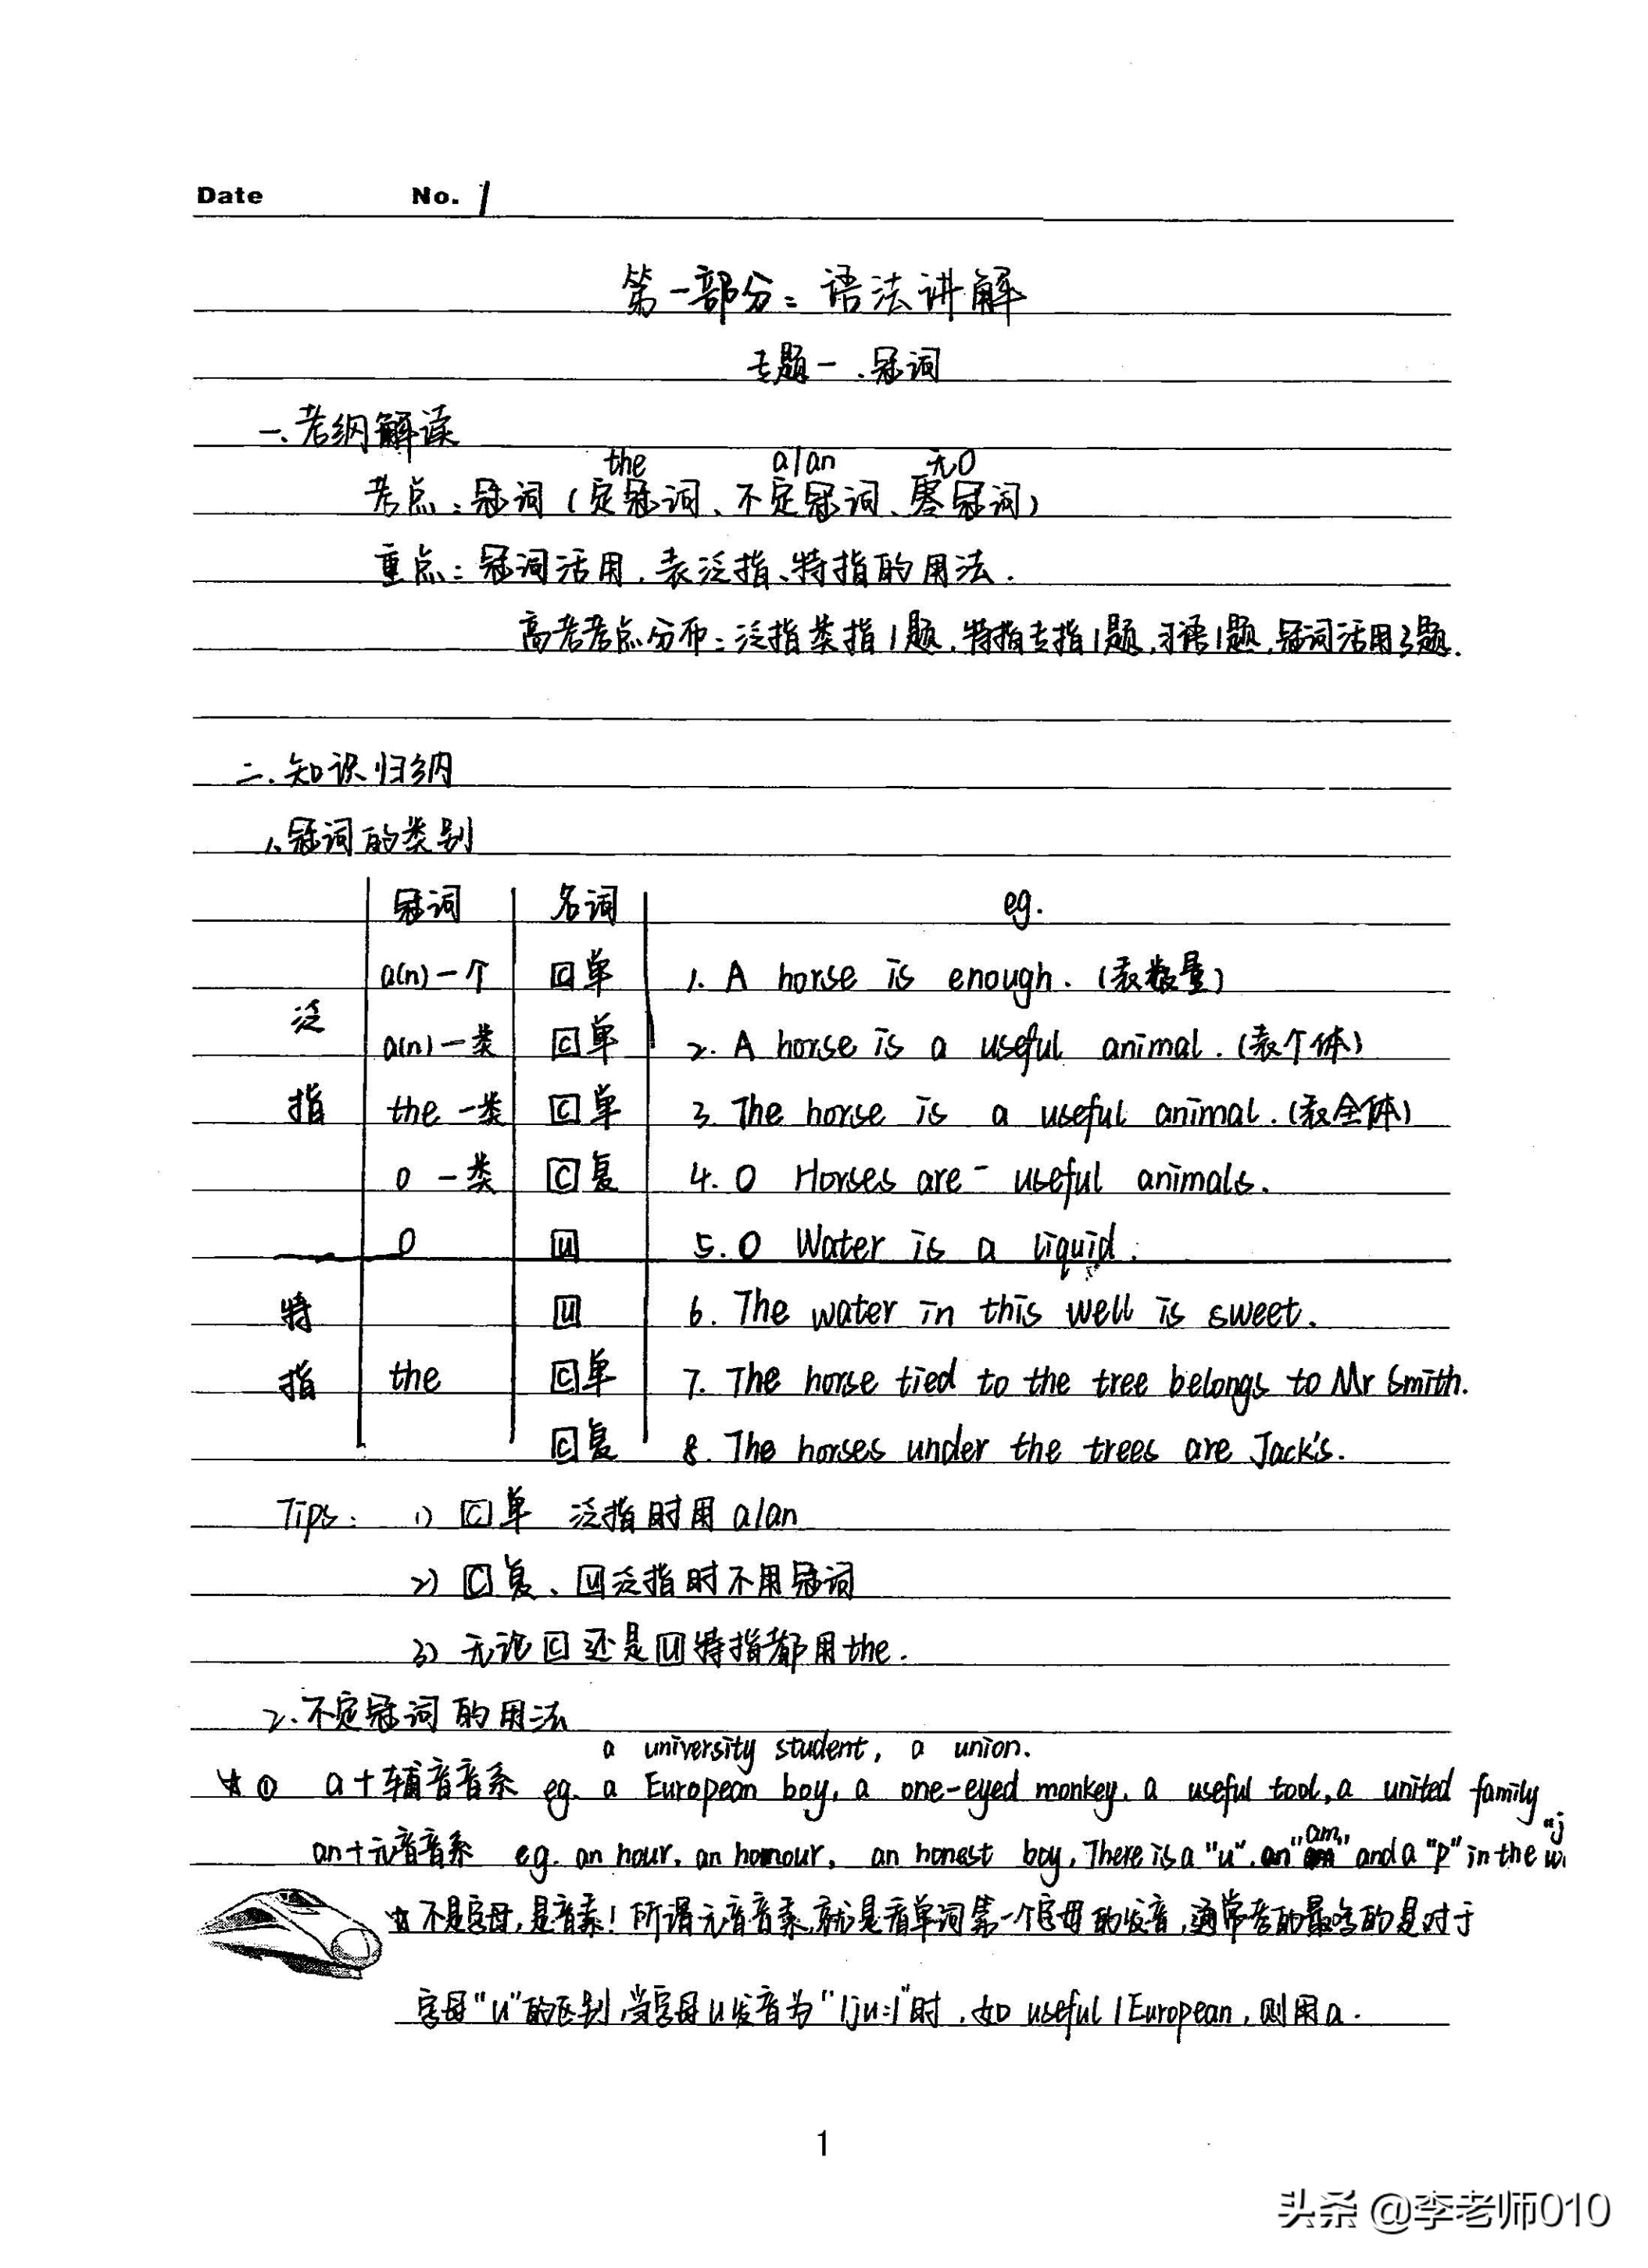 Date No. 1
第一部分：语法讲解
专题一.冠词
一.考纲解读
the a/an 无0
考点：冠词（定冠词、不定冠词、零冠词）
重点：冠词活用，表泛指、特指的用法.
高考考点分布：泛指类指1题，特指专指1题，习语1题，冠词活用3题.
二.知识归纳
1.冠词的类别
冠词 名词 eg.
a(n)一个 C单 1. A horse is enough.（表数量）
泛
a(n)一类 C单 2. A horse is a useful animal.（表个体）
指 the 一类 C单 3. The horse is a useful animal.（表全体）
0 一类 C复 4. 0 Horses are - useful animals.
0 U 5. 0 Water is a liquid.
特 U 6. The water in this well is sweet.
指 the C单 7. The horse tied to the tree belongs to Mr Smith.
C复 8. The horses under the trees are Jack's.
Tips: 1) C单 泛指时用 a/an
2) C复、U泛指时不用冠词
3) 无论C还是U特指都用the.
2.不定冠词的用法
a university student, a union.
☆① a+辅音音系 eg. a European boy, a one-eyed monkey, a useful tool, a united family
an+元音音系 eg. an hour, an honour, an honest boy, There is a "u", an "m" and a "p" in the
☆不是字母，是音素！所谓元音音素，就是看单词第一个字母的发音，通常考的最多的是对于
字母"u"的区别，当字母u发音为"/ju:/"时，如 useful / European，则用a.
1
头条 @李老师010